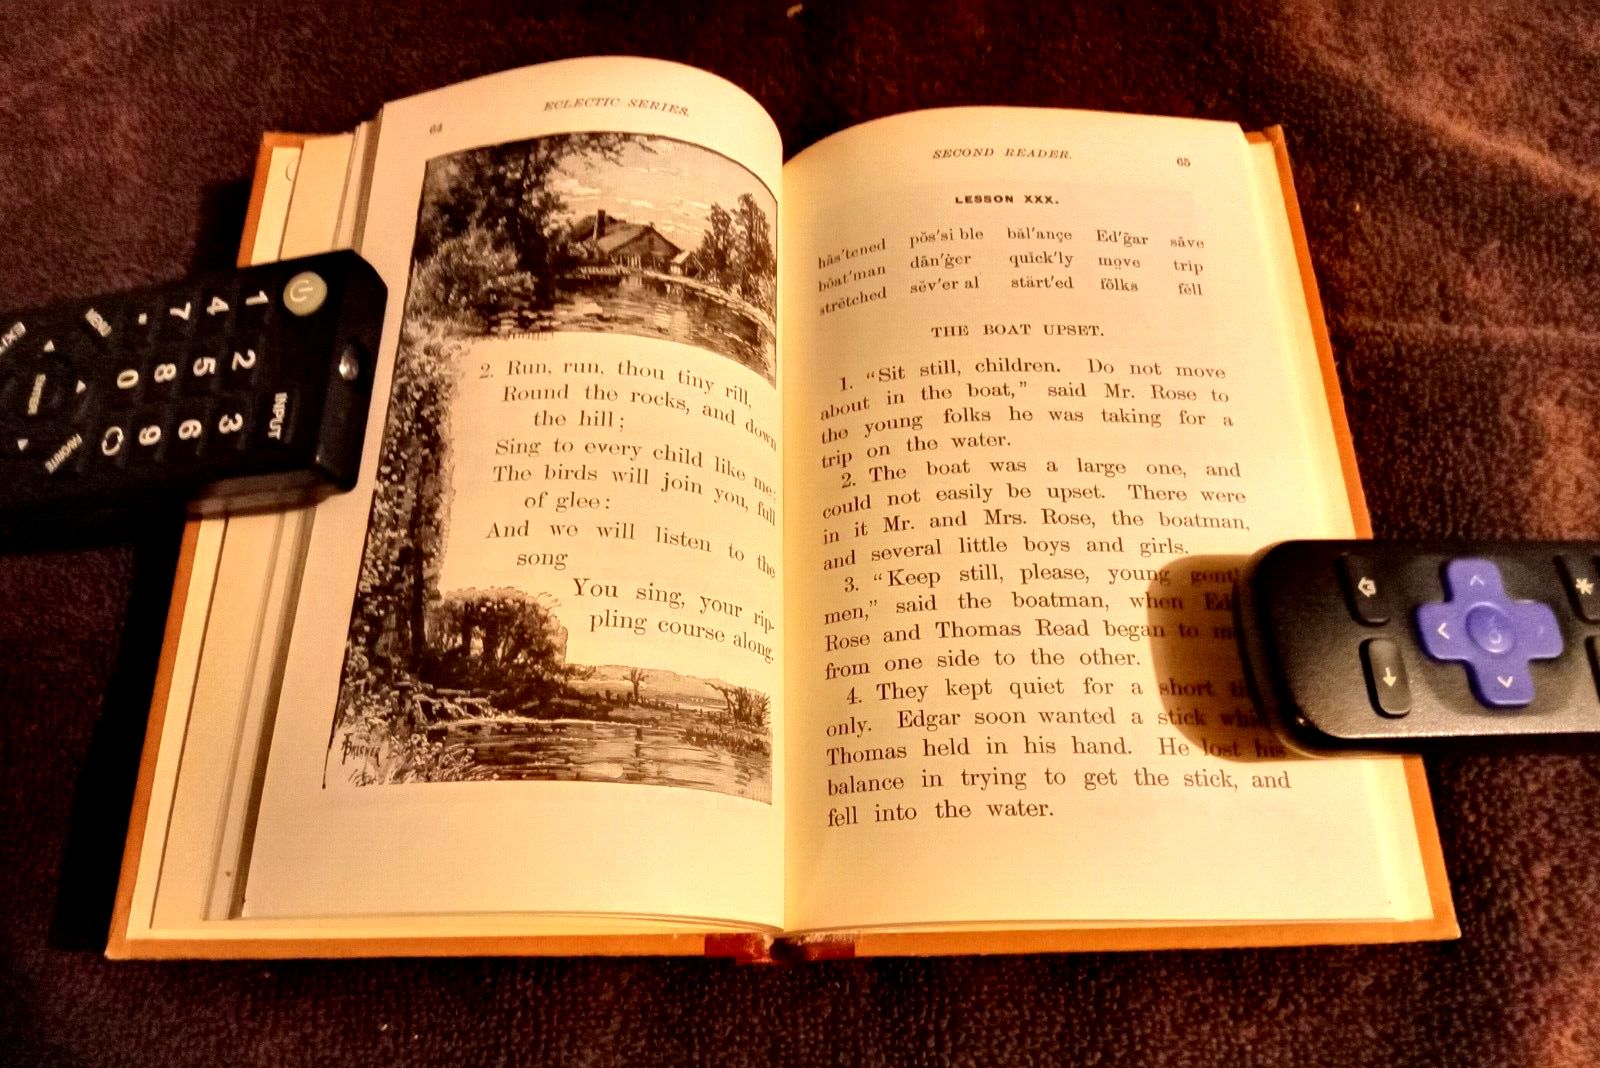 64
ECLECTIC SERIES.
2. Run, run, thou tiny rill,
Round the rocks, and down
the hill;
Sing to every child like me;
The birds will join you, full
of glee:
And we will listen to the
song
You sing, your rip-
pling course along.
SECOND READER. 65
LESSON XXX.
hās′tened pŏs′si ble băl′ançe Ed′g̃ar sāve
bōat′man dān′ġer quĭck′ly mo̤ve trĭp
strĕtched sĕv′er al stärt′ed fōlks fĕll
THE BOAT UPSET.
1. “Sit still, children. Do not move
about in the boat,” said Mr. Rose to
the young folks he was taking for a
trip on the water.
2. The boat was a large one, and
could not easily be upset. There were
in it Mr. and Mrs. Rose, the boatman,
and several little boys and girls.
3. “Keep still, please, young
men,” said the boatman, when
Rose and Thomas Read began to
from one side to the other.
4. They kept quiet for a short
only. Edgar soon wanted a stick
Thomas held in his hand. He lost his
balance in trying to get the stick, and
fell into the water.
1 2 3
4 5 6
7 8 9
0
INPUT
FAVORITE